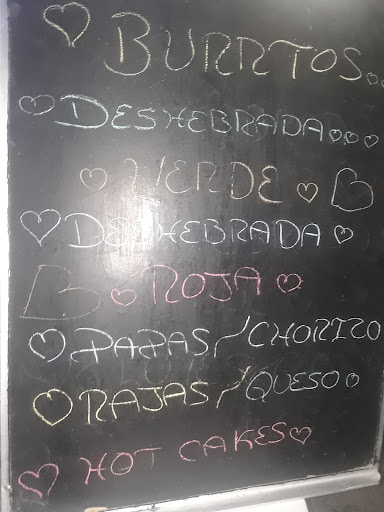 BURRTOS...
DESHEBRADA...
VERDE
DESHEBRADA
ROJA
PAPAS/CHORIZO
RAJAS/QUESO
HOT CAKES